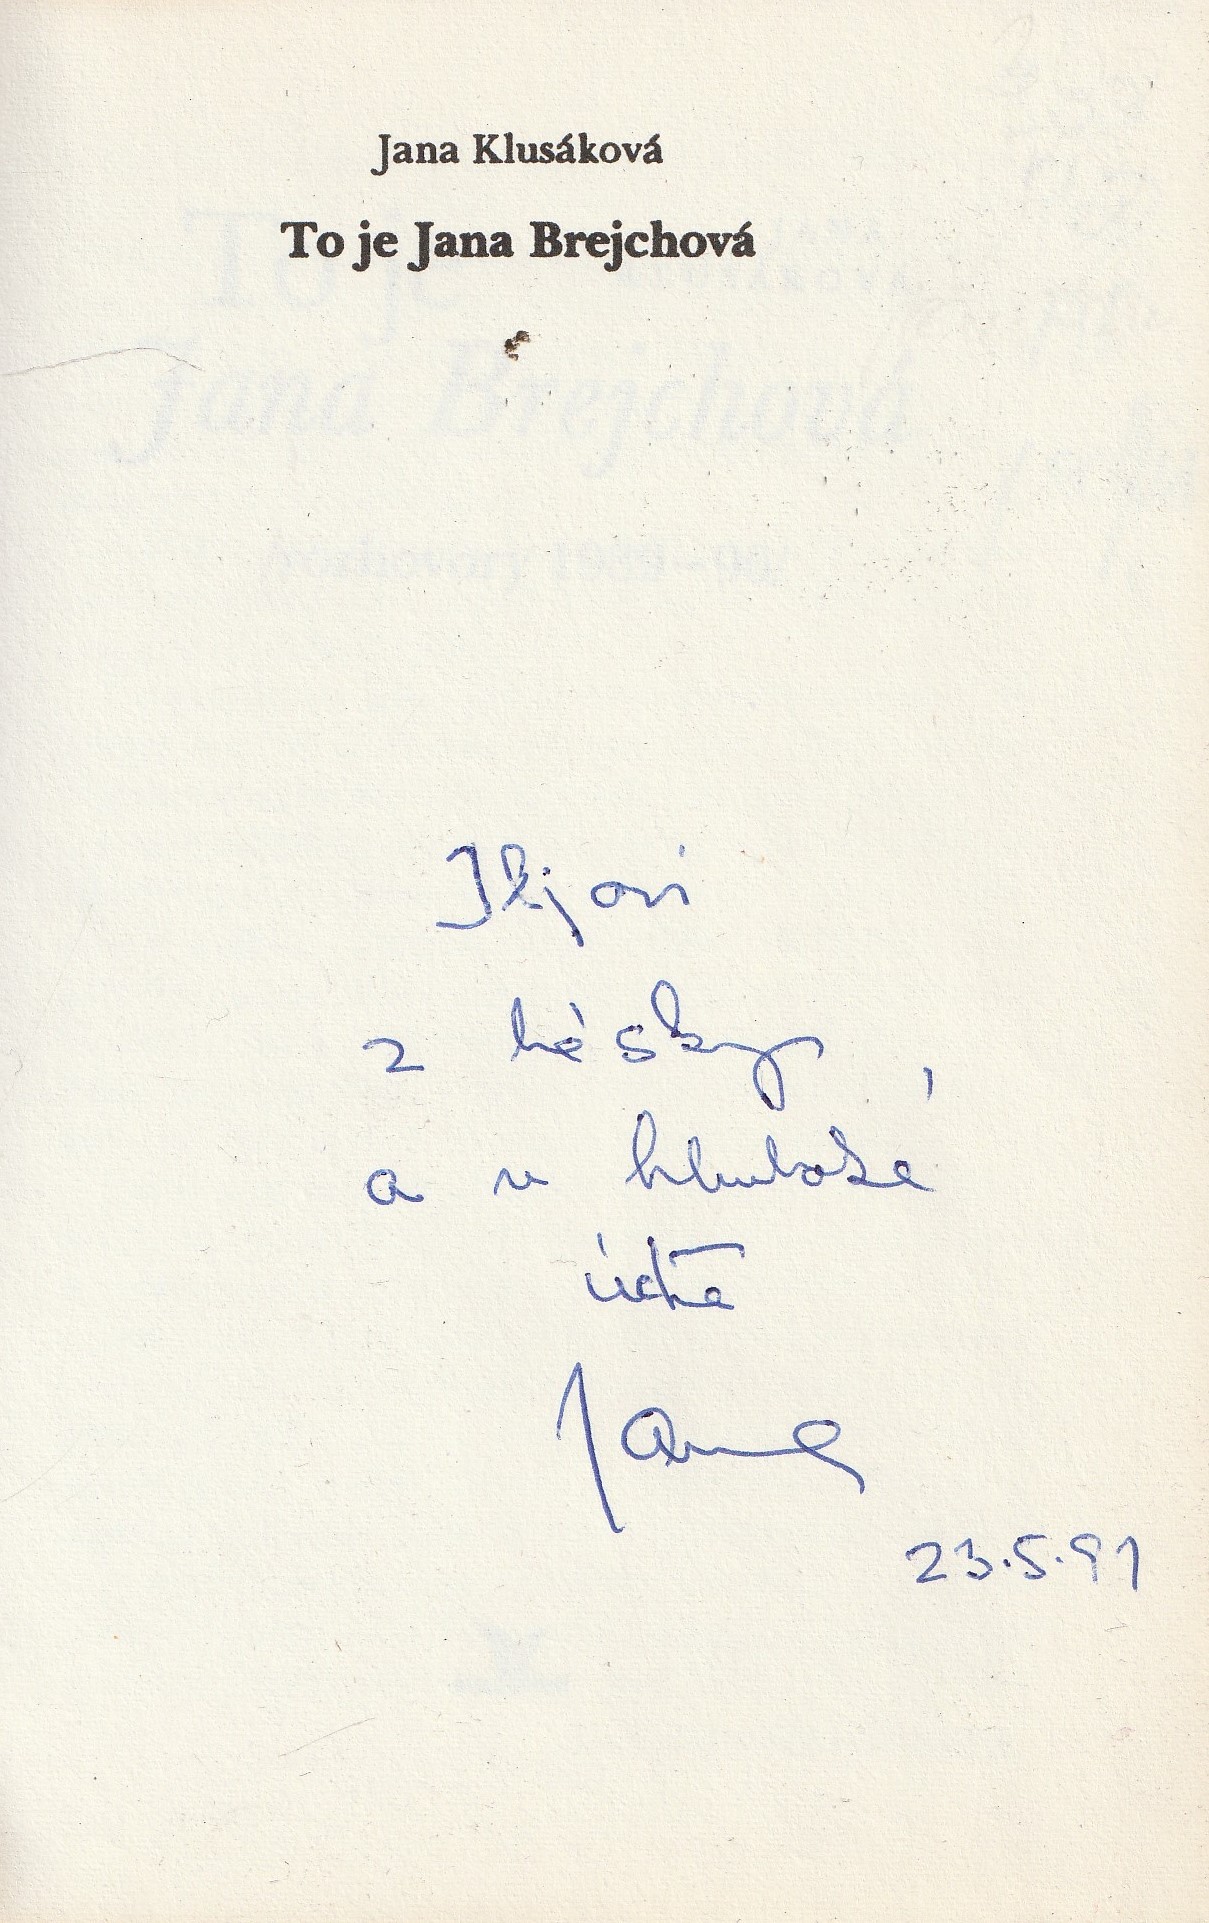 Jana Klusáková
To je Jana Brejchová
Iljovi
z lásky
a v hluboké
úctě
Jana
23.5.91